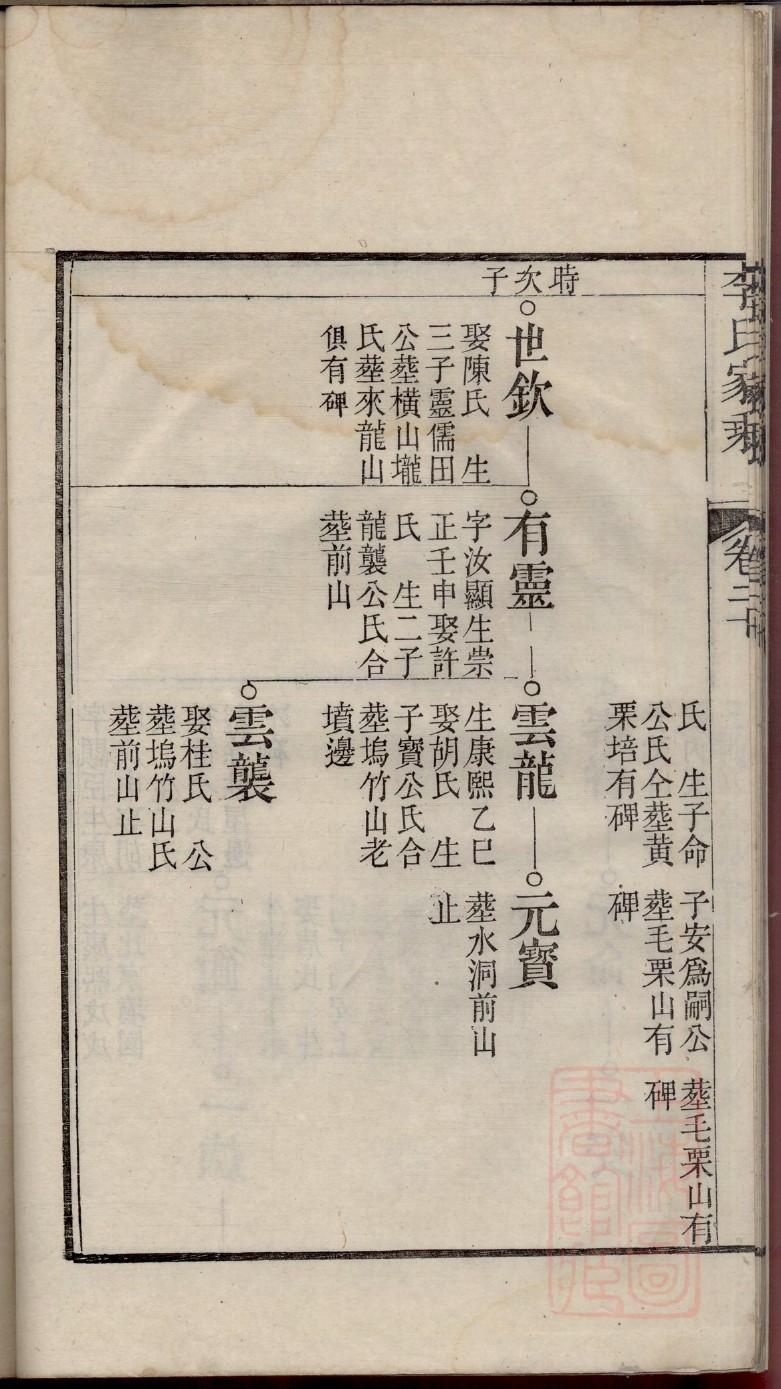 李氏家乘
卷二十
氏　生子命
公氏仝塟黄
栗培有碑
子安爲嗣公
塟毛栗山有
碑
塟毛栗山有
碑
時次子
世欽
娶陳氏　生
三子靈儒田
公塟橫山壠
氏塟來龍山
俱有碑
有靈
字汝顯生崇
正壬申娶許
氏　生二子
龍襲公氏合
塟前山
雲龍
生康熙乙巳
娶胡氏　生
子寶公氏合
塟塢竹山老
墳邊
元寶
塟水洞前山
止
雲襲
娶桂氏　公
塟塢竹山氏
塟前山止
上海圖
書館藏